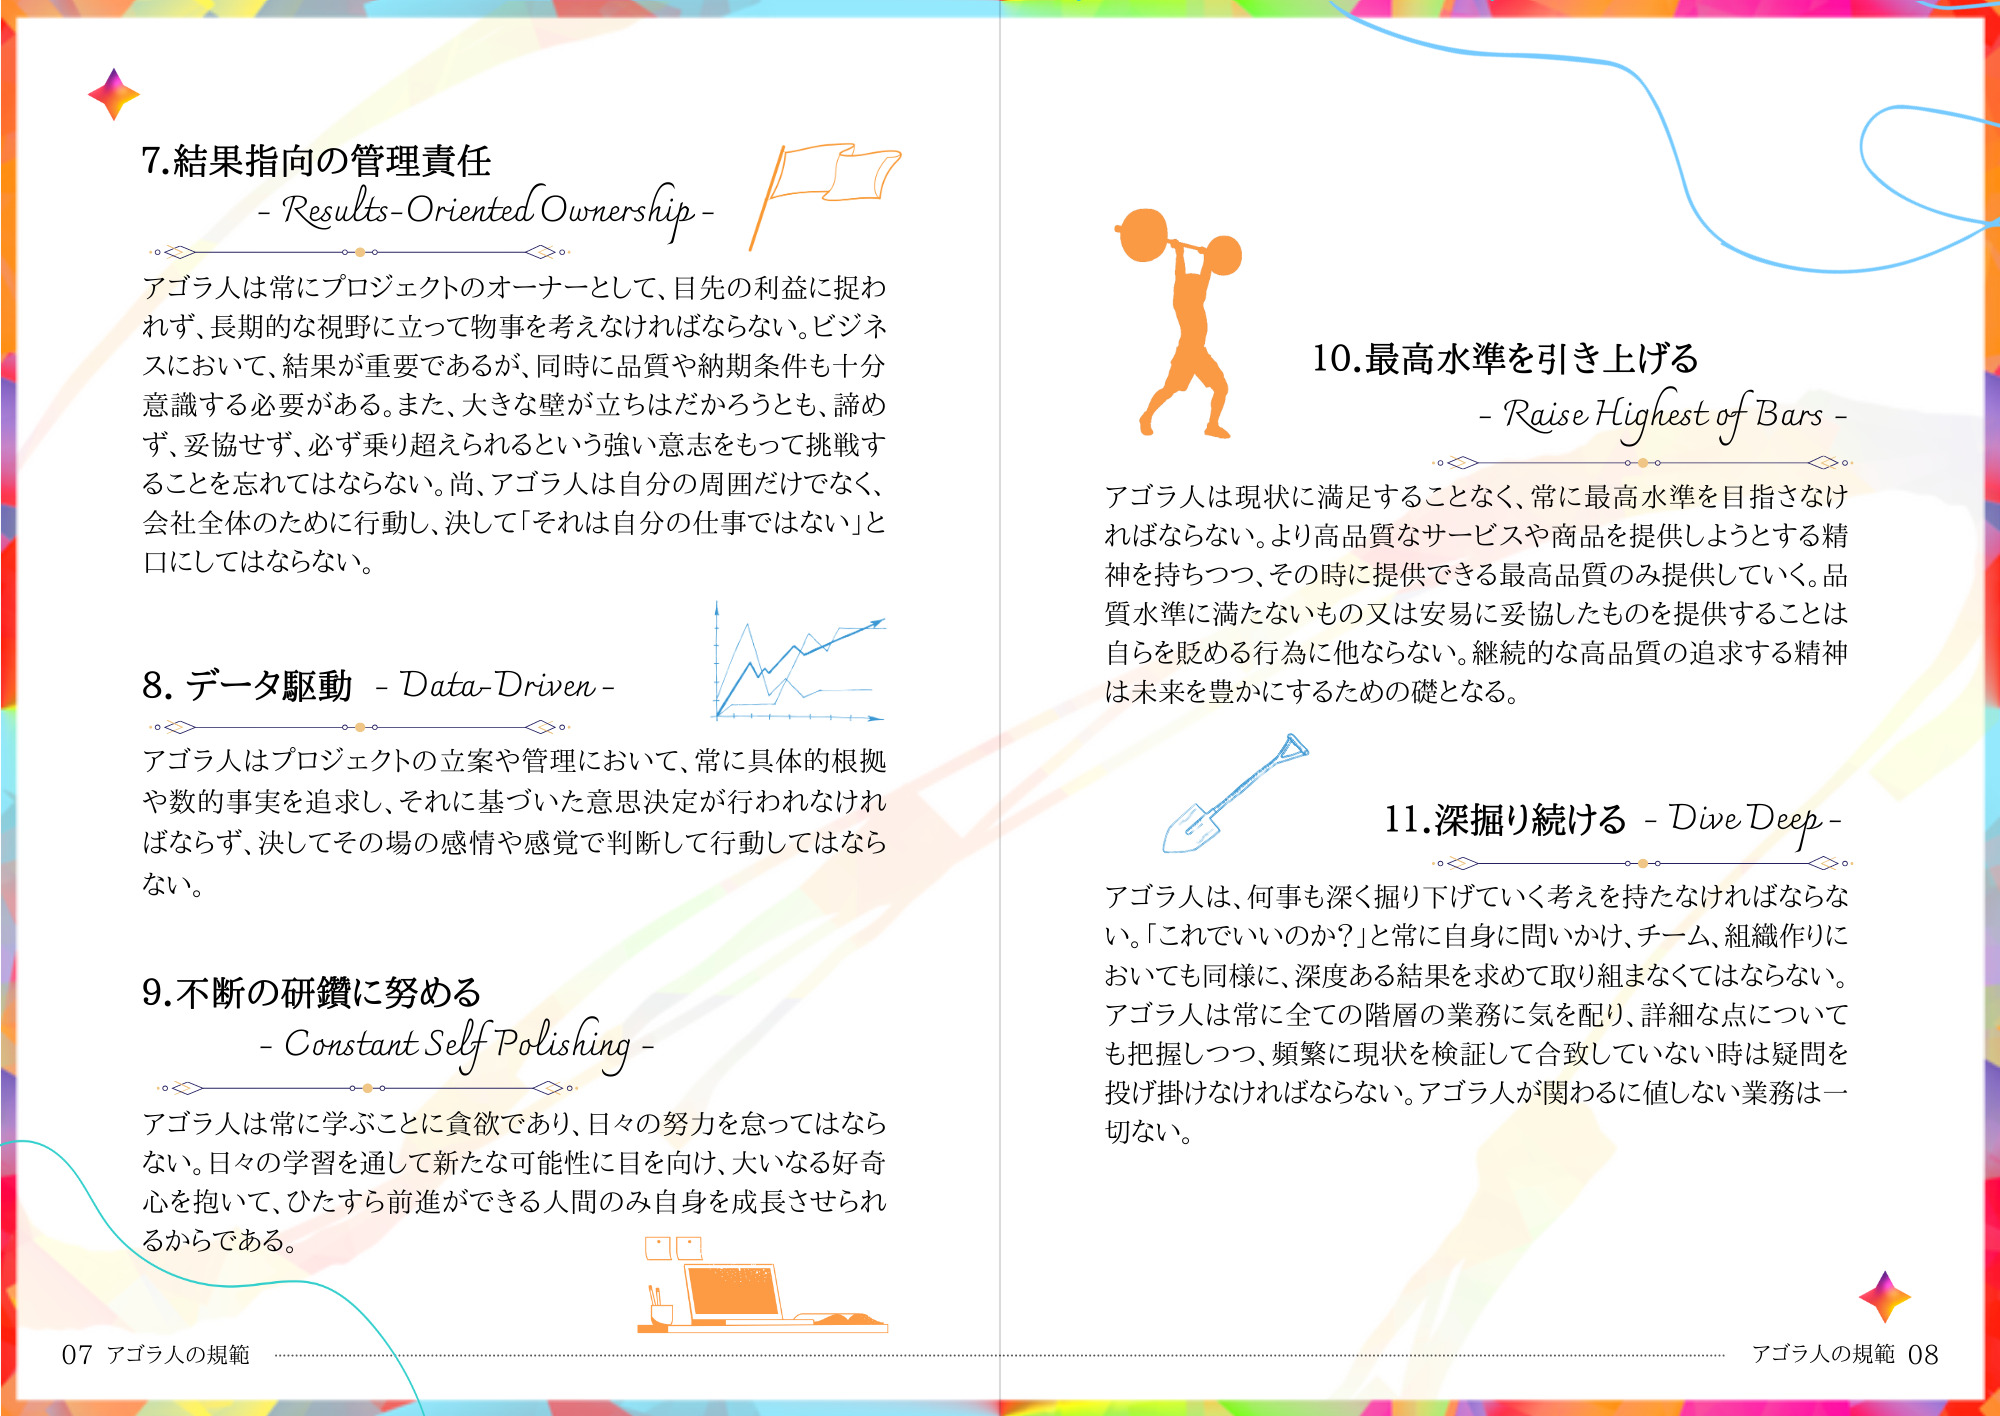 7.結果指向の管理責任
- Results-Oriented Ownership -
アゴラ人は常にプロジェクトのオーナーとして、目先の利益に捉わ
れず、長期的な視野に立って物事を考えなければならない。ビジネ
スにおいて、結果が重要であるが、同時に品質や納期条件も十分
意識する必要がある。また、大きな壁が立ちはだかろうとも、諦め
ず、妥協せず、必ず乗り超えられるという強い意志をもって挑戦す
ることを忘れてはならない。尚、アゴラ人は自分の周囲だけでなく、
会社全体のために行動し、決して「それは自分の仕事ではない」と
口にしてはならない。
8. データ駆動 - Data-Driven -
アゴラ人はプロジェクトの立案や管理において、常に具体的根拠
や数的事実を追求し、それに基づいた意思決定が行われなけれ
ばならず、決してその場の感情や感覚で判断して行動してはなら
ない。
9.不断の研鑽に努める
- Constant Self Polishing -
アゴラ人は常に学ぶことに貪欲であり、日々の努力を怠ってはなら
ない。日々の学習を通して新たな可能性に目を向け、大いなる好奇
心を抱いて、ひたすら前進ができる人間のみ自身を成長させられ
るからである。
07 アゴラ人の規範
10.最高水準を引き上げる
- Raise Highest of Bars -
アゴラ人は現状に満足することなく、常に最高水準を目指さなけ
ればならない。より高品質なサービスや商品を提供しようとする精
神を持ちつつ、その時に提供できる最高品質のみ提供していく。品
質水準に満たないもの又は安易に妥協したものを提供することは
自らを貶める行為に他ならない。継続的な高品質の追求する精神
は未来を豊かにするための礎となる。
11.深掘り続ける - Dive Deep -
アゴラ人は、何事も深く掘り下げていく考えを持たなければならな
い。「これでいいのか?」と常に自身に問いかけ、チーム、組織作りに
おいても同様に、深度ある結果を求めて取り組まなくてはならない。
アゴラ人は常に全ての階層の業務に気を配り、詳細な点について
も把握しつつ、頻繁に現状を検証して合致していない時は疑問を
投げ掛けなければならない。アゴラ人が関わるに値しない業務は一
切ない。
アゴラ人の規範 08